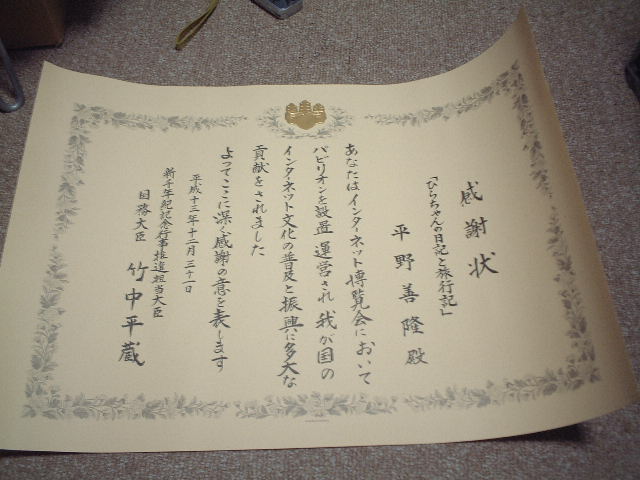 感謝状
「ひらちゃんの日記と旅行記」
平野善隆殿
あなたはインターネット博覧会において
パビリオンを設置運営され我が国の
インターネット文化の普及と振興に多大な
貢献をされました
よってここに深く感謝の意を表します
平成十三年十二月三十一日
新千年紀記念行事推進担当大臣
国務大臣 竹中平蔵